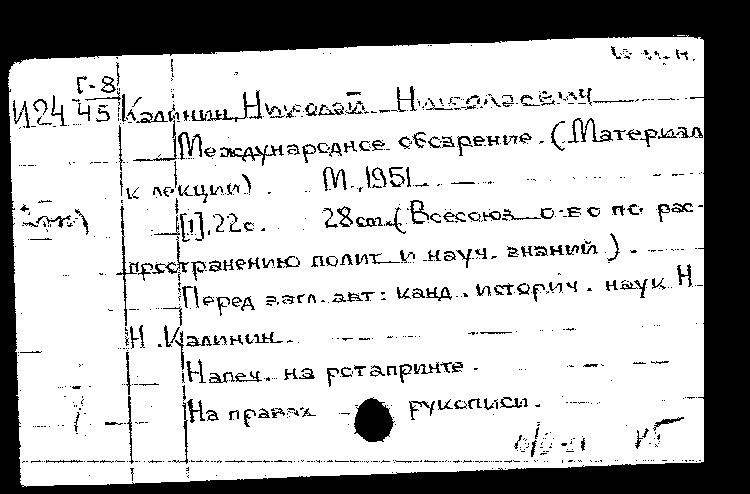 Г-8
И24 45 Калинин, Николай Николаевич
Международное обозрение. (Материал
к лекции). М., 1951.
[1], 22с. 28см. (Всесоюз. о-во по рас-
пространению полит. и науч. знаний).
Перед загл. авт: канд. историч. наук Н.
Н. Калинин.
Напеч. на ротапринте.
На правах рукописи.